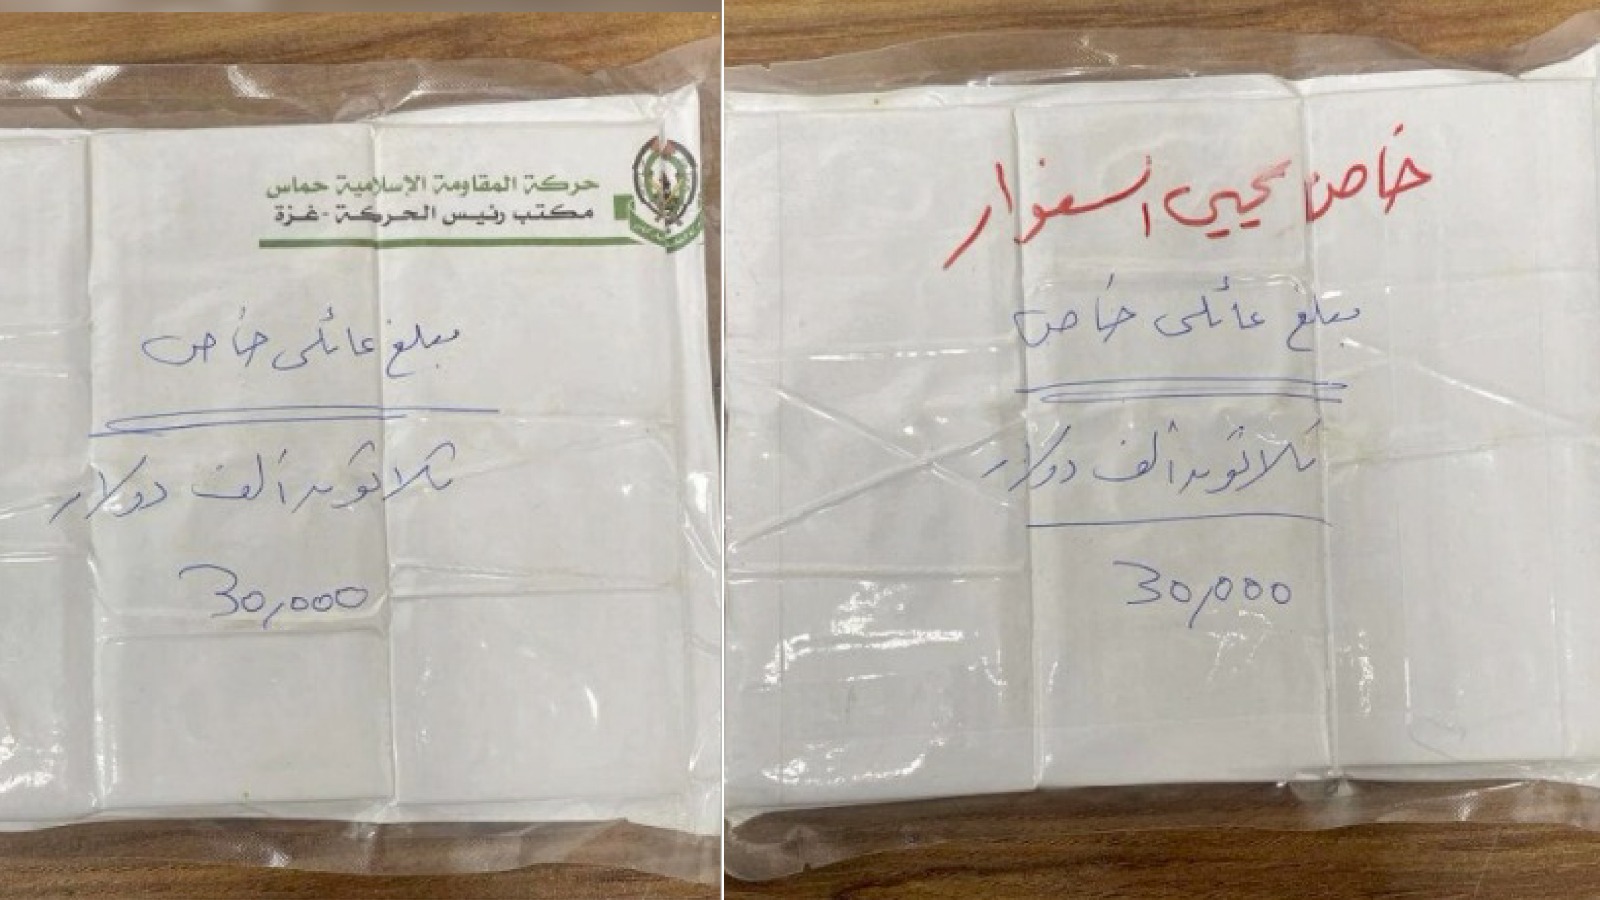 حركة المقاومة الإسلامية حماس
مكتب رئيس الحركة - غزة
مبلغ عائلي خاص
ثلاثون ألف دولار
30,000
خاص يحيى السنوار
مبلغ عائلي خاص
ثلاثون ألف دولار
30,000